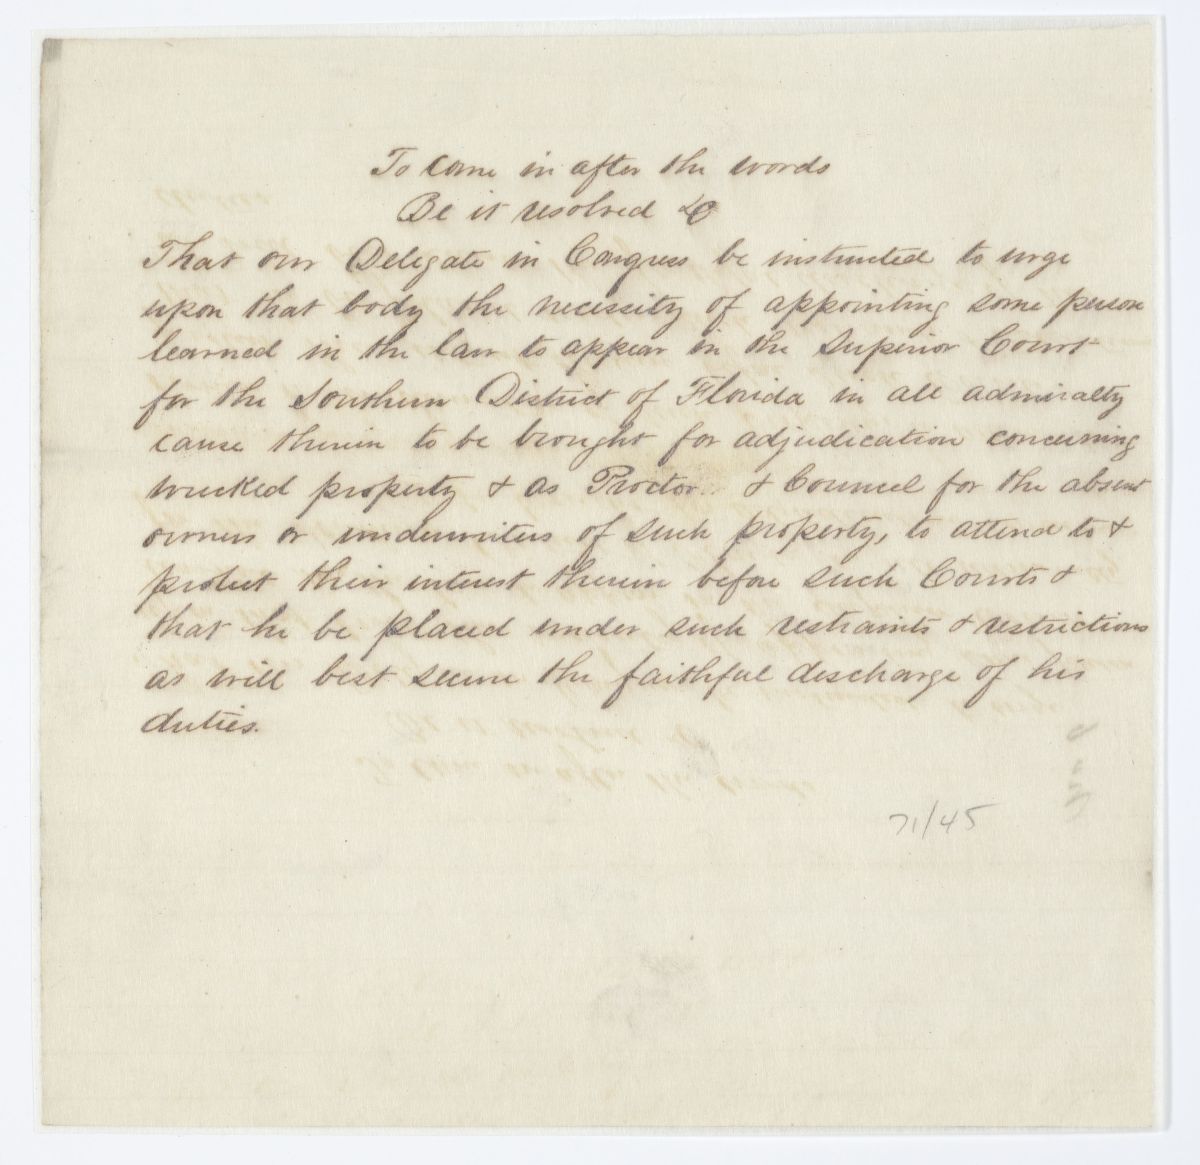 To come in after the words
Be it resolved &c
That our Delegate in Congress be instructed to urge
upon that body the necessity of appointing some person
learned in the law to appear in the Superior Court
for the Southern District of Florida in all admiralty
cause therein to be brought for adjudication concerning
wrecked property & as Proctor & Councel for the absent
owners or underwriters of such property, to attend to &
protect their interest therein before such Courts &
that he be placed under such restraints & restrictions
as will best secure the faithful discharge of his
duties.
71/45